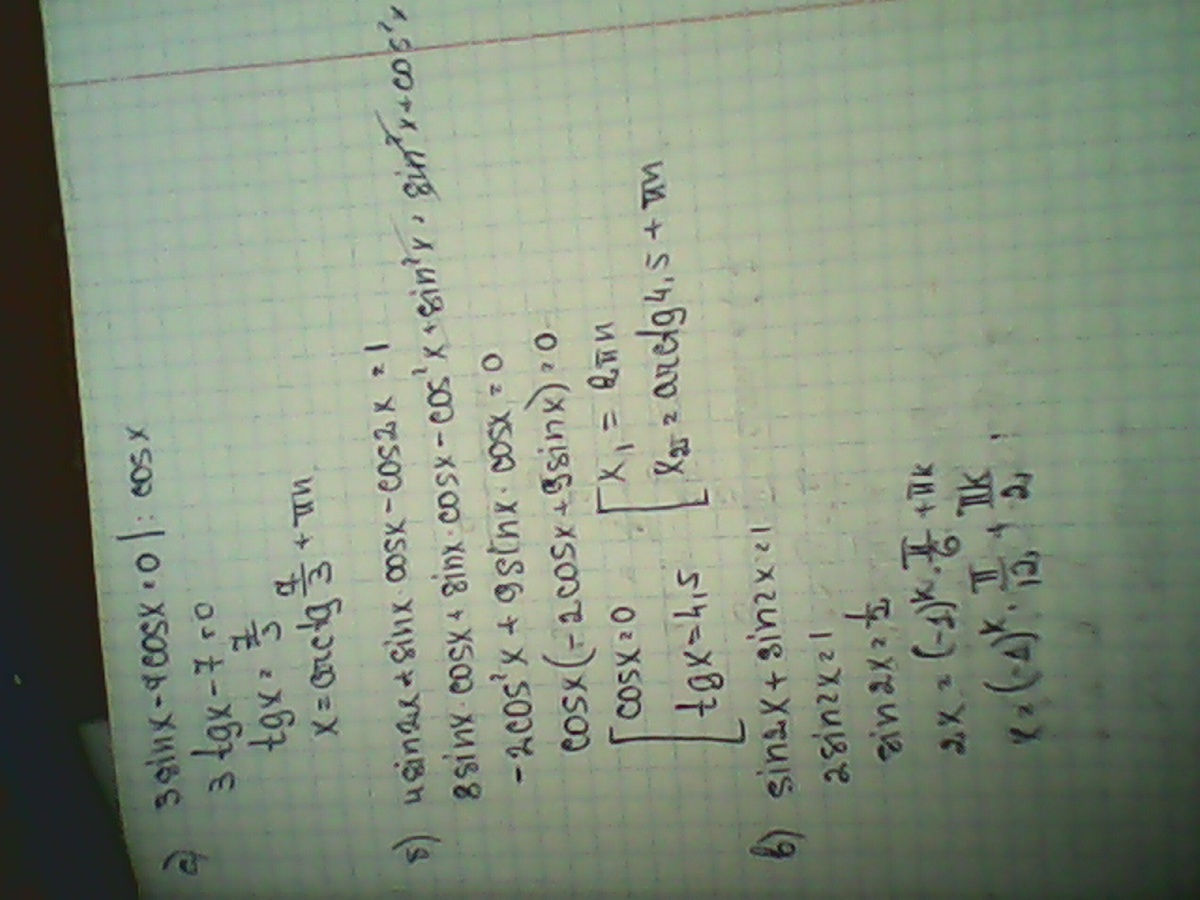 а) 3 sinx - 7 cosx = 0 | : cosx
3 tgx - 7 = 0
tgx = 7/3
x = arctg 7/3 + πn
б) 4 sin2x + sinx · cosx - cos2x = 1
8 sinx · cosx + sinx · cosx - cos²x + sin²x = sin²x + cos²x
-2cos²x + 9 sinx · cosx = 0
cosx (-2cosx + 9sinx) = 0
[ cosx = 0 [ x₁ = 2πn
[ tgx = 4,5 [ x₂ = arctg 4,5 + πn
в) sin2x + sin2x = 1
2 sin2x = 1
sin2x = 1/2
2x = (-1)ᵏ · π/6 + πk
x = (-1)ᵏ · π/12 + πk/2